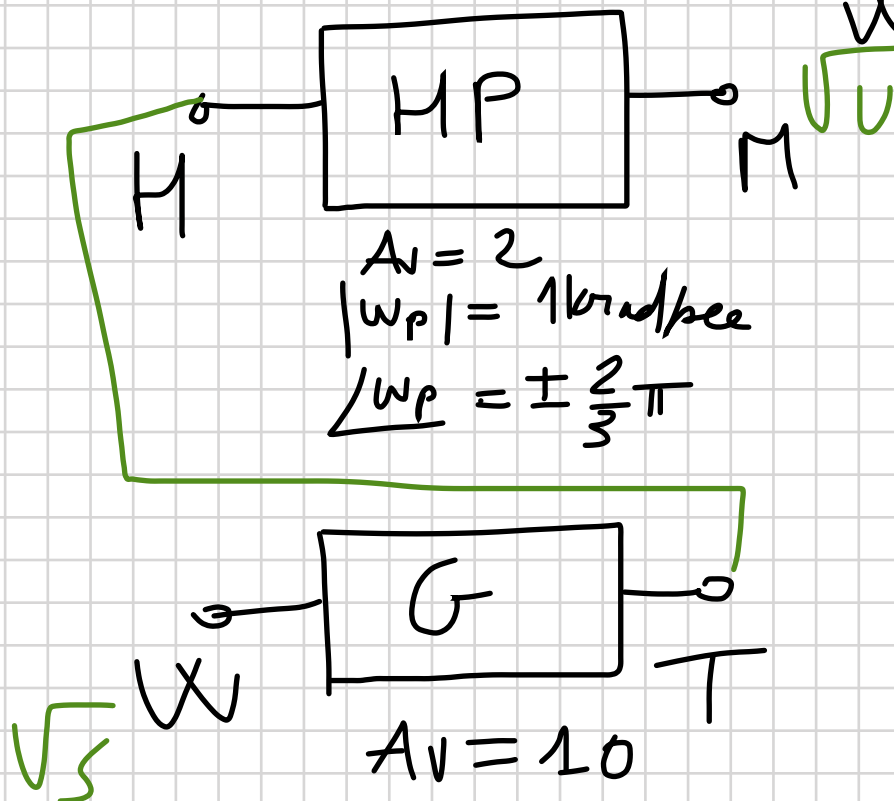 HP
H
M
Av = 2
|wp| = 1krad/sec
∠wp = ± 2/3 π
G
W
T
Av = 10